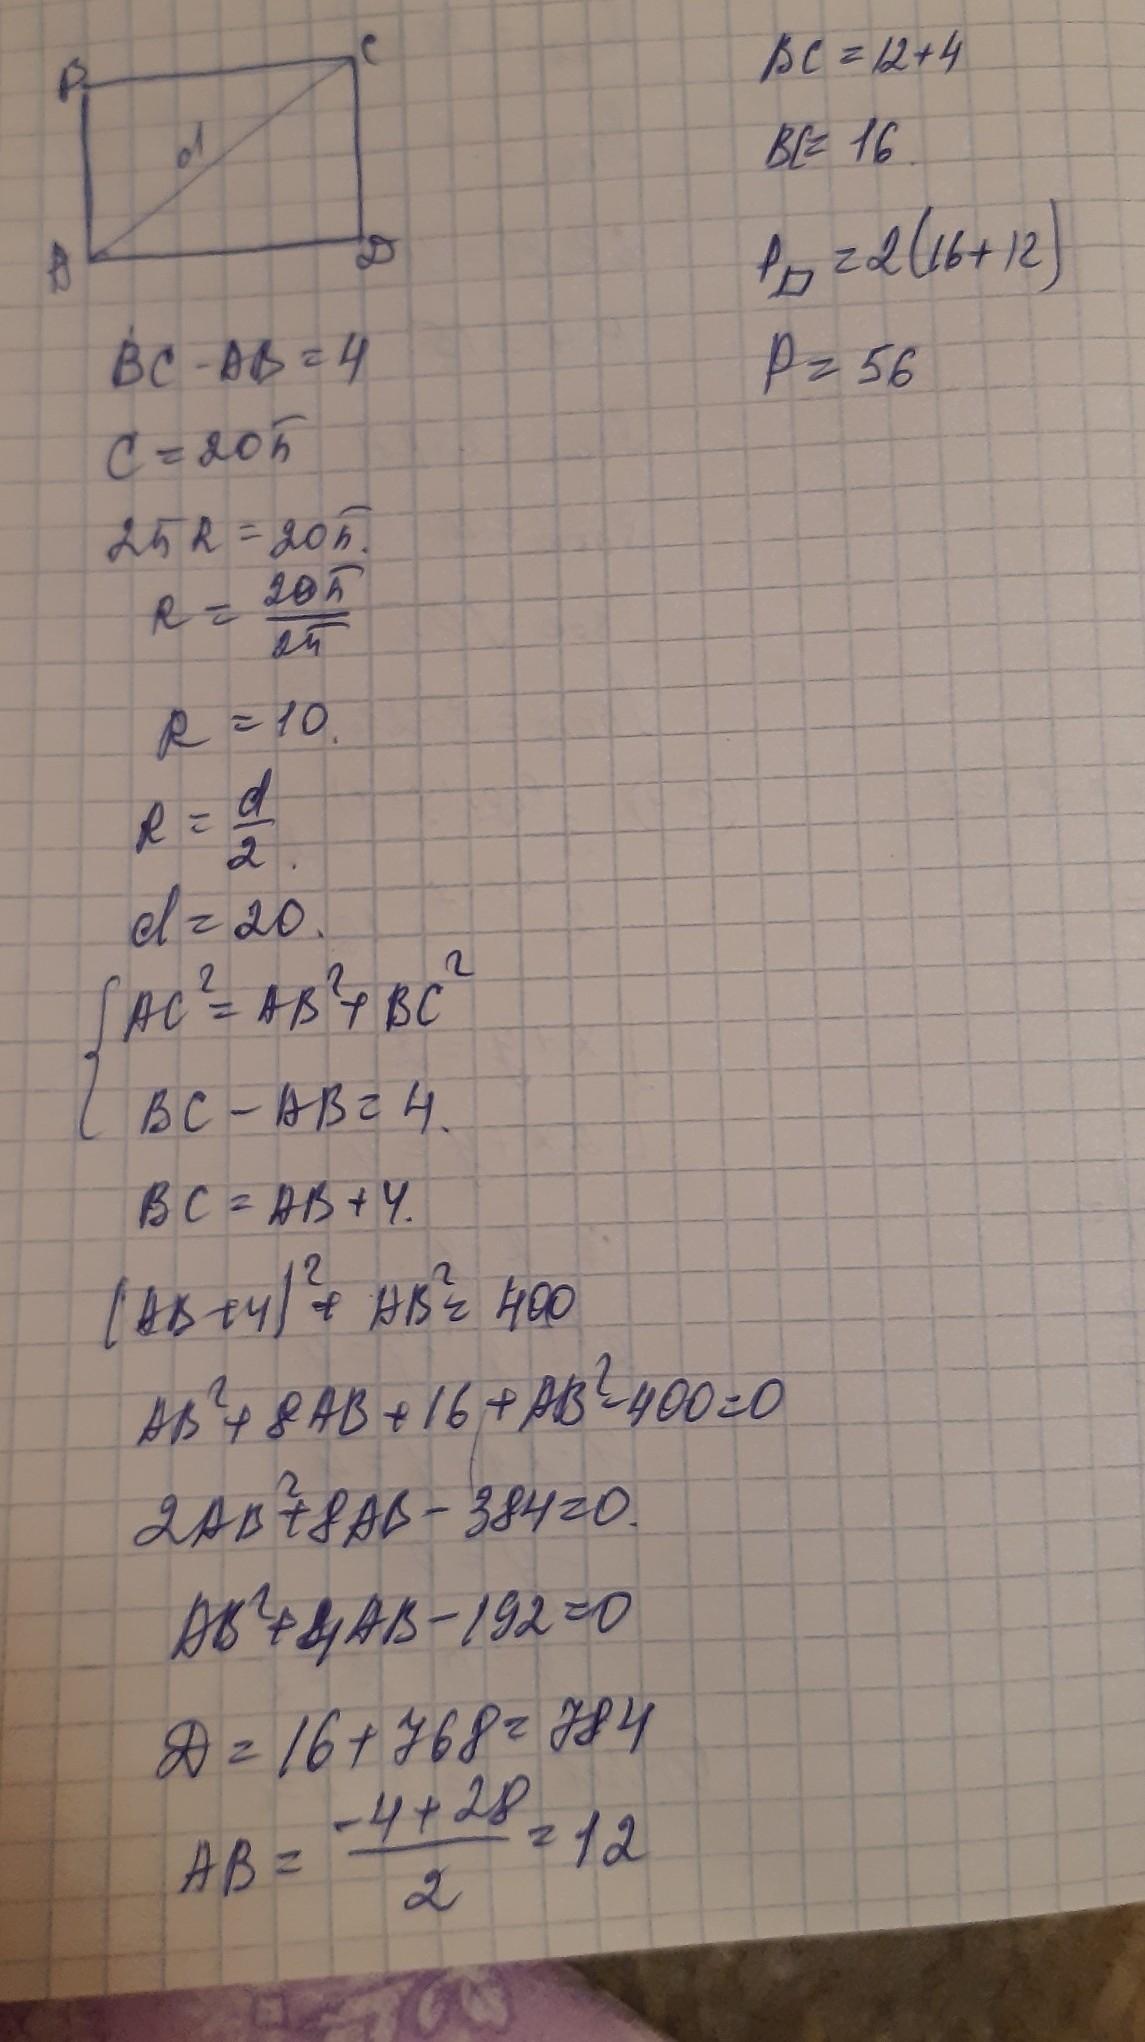 B C
d
A D
BC - AB = 4
C = 20π
2πR = 20π.
R = 20π/2π
R = 10.
R = d/2.
d = 20.
{ AC² = AB² + BC²
BC - AB = 4.
BC = AB + 4.
(AB + 4)² + AB² = 400
AB² + 8AB + 16 + AB² - 400 = 0
2AB² + 8AB - 384 = 0.
AB² + 4AB - 192 = 0
D = 16 + 768 = 784
AB = (-4 + 28)/2 = 12
BC = 12 + 4
BC = 16.
P▱ = 2(16 + 12)
P = 56